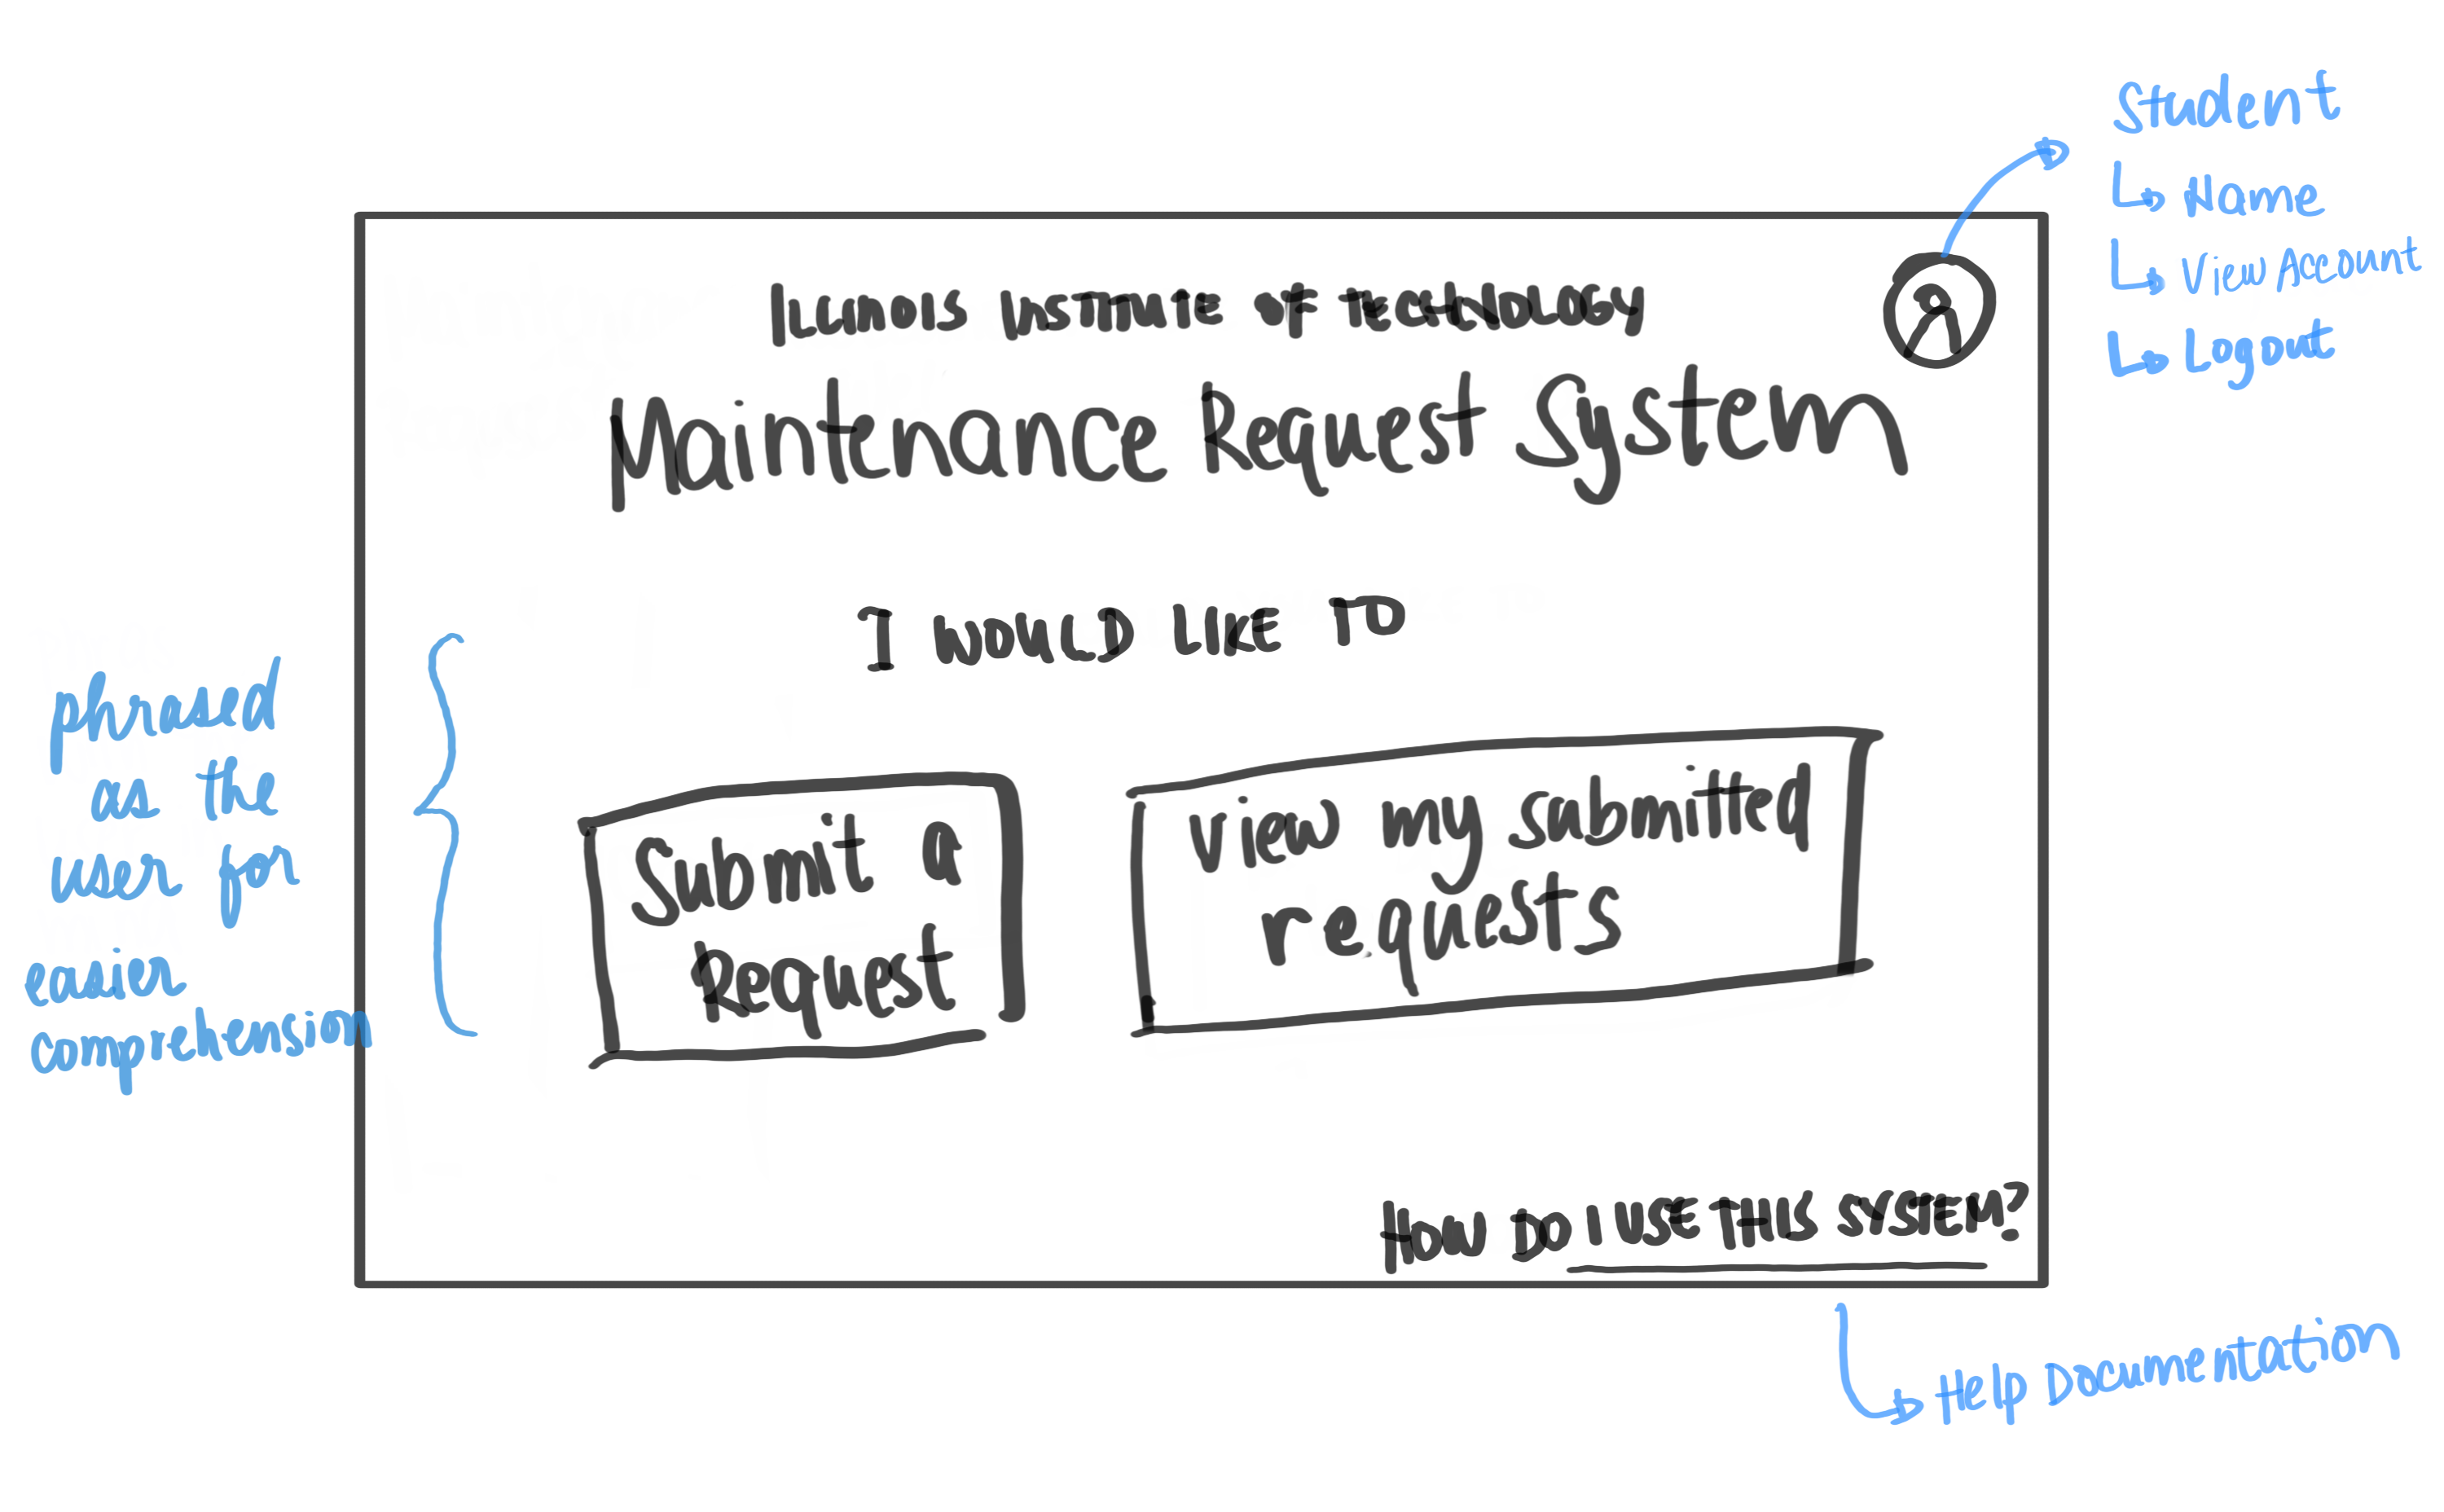 Student
↳ Name
↳ View Account
↳ Logout
ILLINOIS INSTITUTE OF TECHNOLOGY
Maintenance Request System
I WOULD LIKE TO
phrased
as the
user for
easier
comprehension
Submit a
Request
View my submitted
requests
HOW DO I USE THIS SYSTEM?
↳ Help Documentation